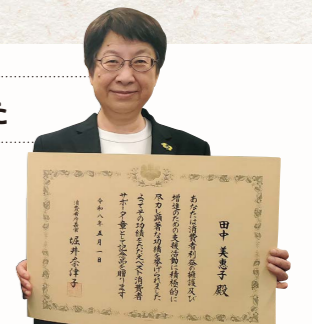 た
田中 美惠子 殿
あなたは消費者利益の擁護及び
増進のための支援活動に積極的に
尽力し顕著な功績を挙げられました
よってその功績をたたえベスト消費者
サポーター章として記念品を贈ります
令和八年五月一日
消費者庁長官 堀井奈津子